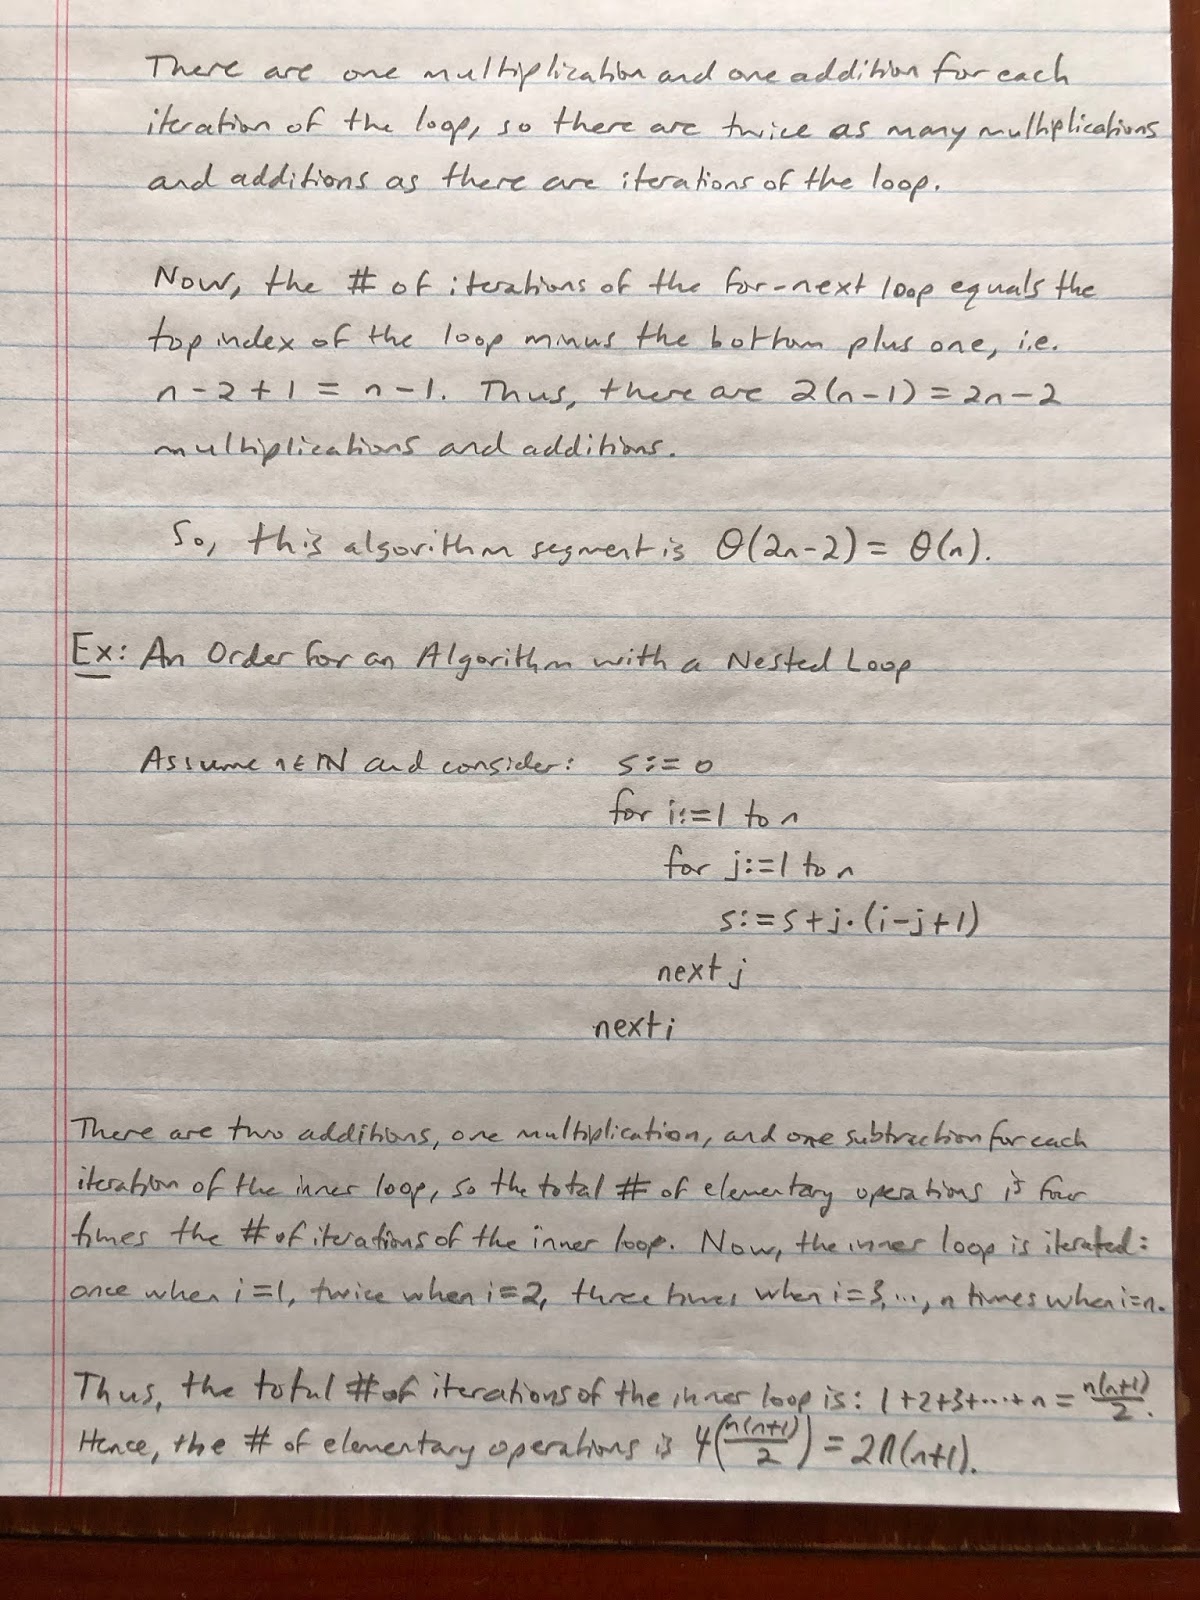 There are one multiplication and one addition for each
iteration of the loop, so there are twice as many multiplications
and additions as there are iterations of the loop.
Now, the # of iterations of the for-next loop equals the
top index of the loop minus the bottom plus one, i.e.
n-2+1 = n-1. Thus, there are 2(n-1) = 2n-2
multiplications and additions.
So, this algorithm segment is Θ(2n-2) = Θ(n).
Ex: An Order for an Algorithm with a Nested Loop
Assume n∈ℕ and consider: s:=0
for i:=1 to n
for j:=1 to n
s:=s+j·(i-j+1)
next j
next i
There are two additions, one multiplication, and one subtraction for each
iteration of the inner loop, so the total # of elementary operations is four
times the # of iterations of the inner loop. Now, the inner loop is iterated:
once when i=1, twice when i=2, three times when i=3, ..., n times when i=n.
Thus, the total # of iterations of the inner loop is: 1+2+3+···+n = n(n+1)/2.
Hence, the # of elementary operations is 4(n(n+1)/2) = 2n(n+1).